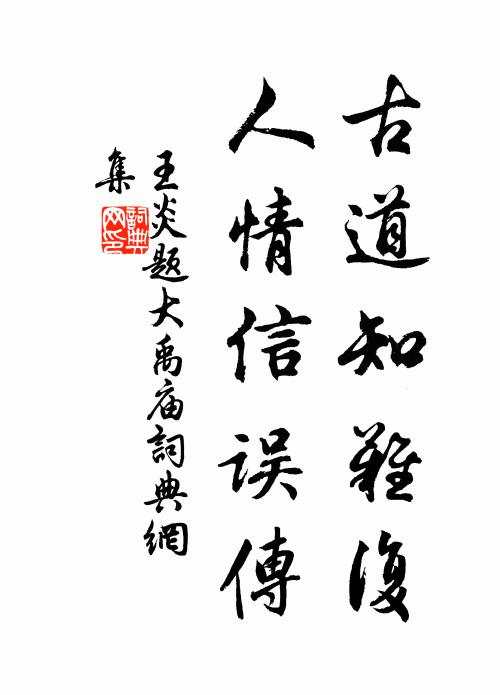 古道知難復
人情信误傳
王炎题大禹庙詞典網
集
詞典网印